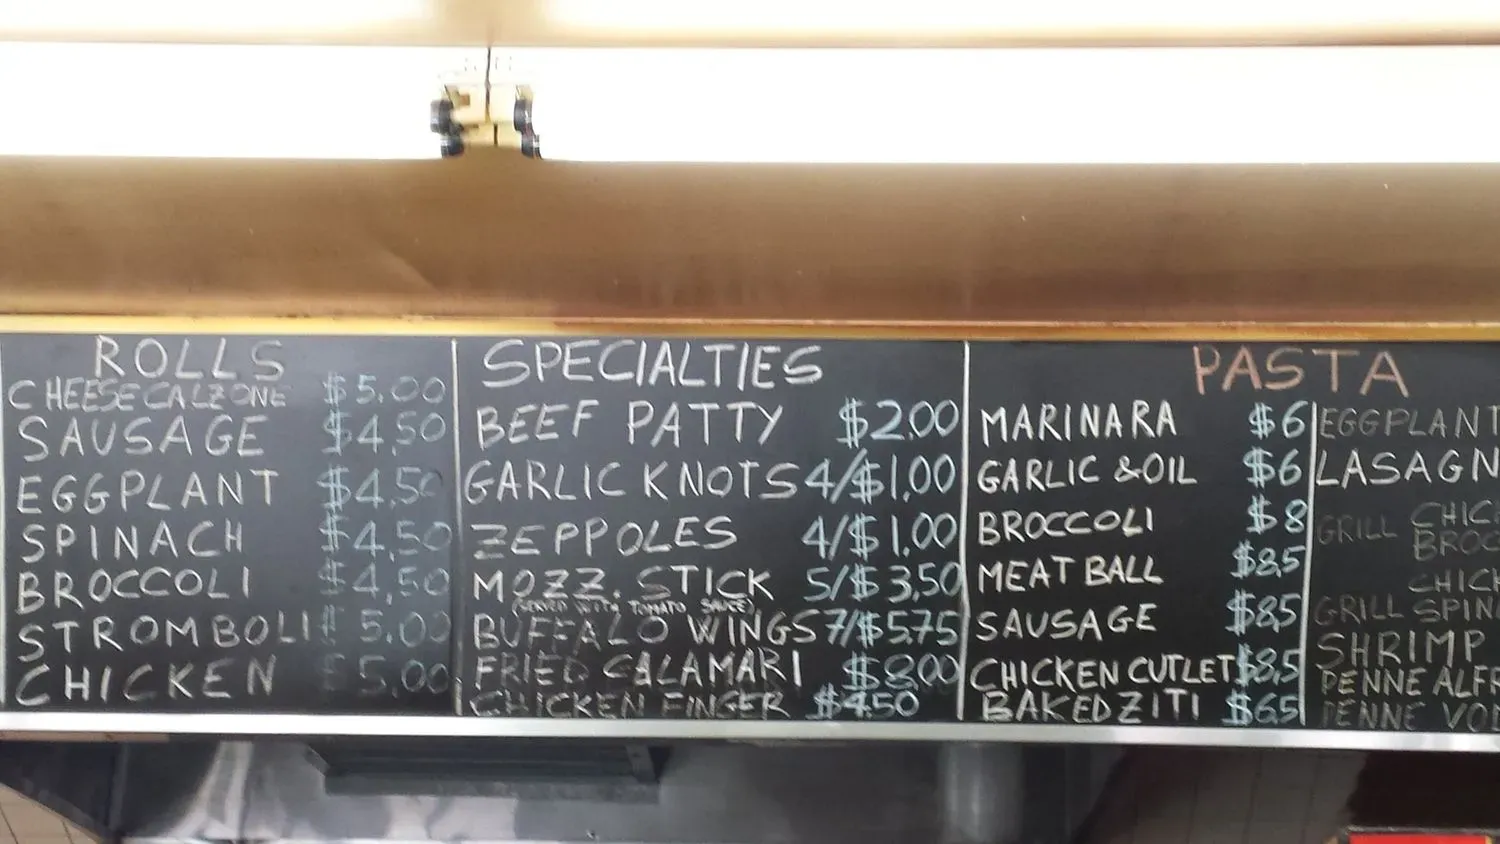 ROLLS
CHEESE CALZONE $5.00
SAUSAGE $4.50
EGGPLANT $4.50
SPINACH $4.50
BROCCOLI $4.50
STROMBOLI $5.00
CHICKEN $5.00
SPECIALTIES
BEEF PATTY $2.00
GARLIC KNOTS 4/$1.00
ZEPPOLES 4/$1.00
MOZZ. STICK 5/$3.50
(SERVED WITH TOMATO SAUCE)
BUFFALO WINGS 7/$5.75
FRIED CALAMARI $8.00
CHICKEN FINGER $4.50
PASTA
MARINARA $6
GARLIC & OIL $6
BROCCOLI $8
MEAT BALL $8.5
SAUSAGE $8.5
CHICKEN CUTLET $8.5
BAKED ZITI $6.5
EGGPLANT
LASAGN
GRILL CHIC
BROC
CHICK
GRILL SPIN
SHRIMP
PENNE ALFR
PENNE VOD